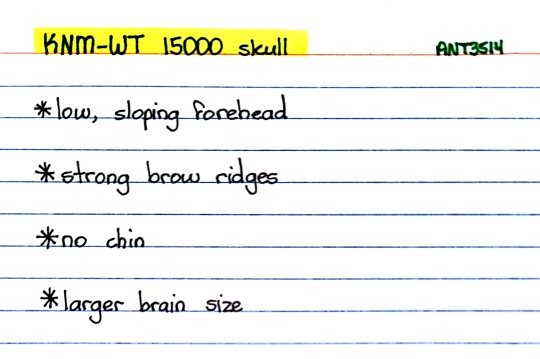 KNM-WT 15000 skull ANT3514
*low, sloping forehead
*strong brow ridges
*no chin
*larger brain size